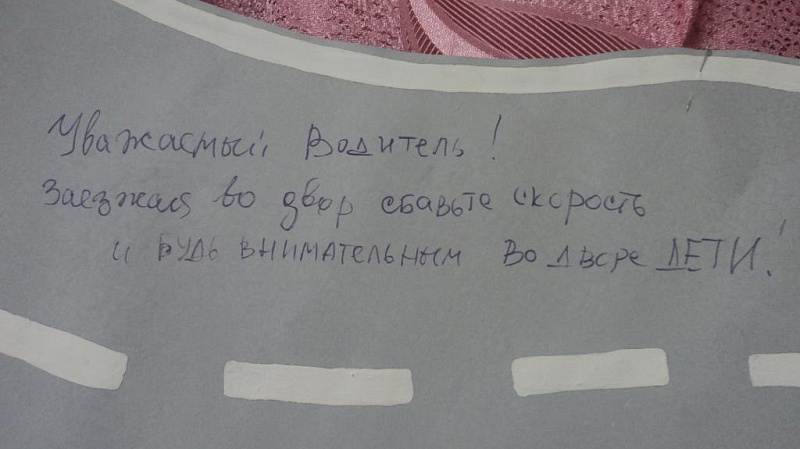 Уважаемый Водитель!
Заезжая во двор сбавьте скорость
и БУДЬ ВНИМАТЕЛЬНЫМ Во дворе ДЕТИ!